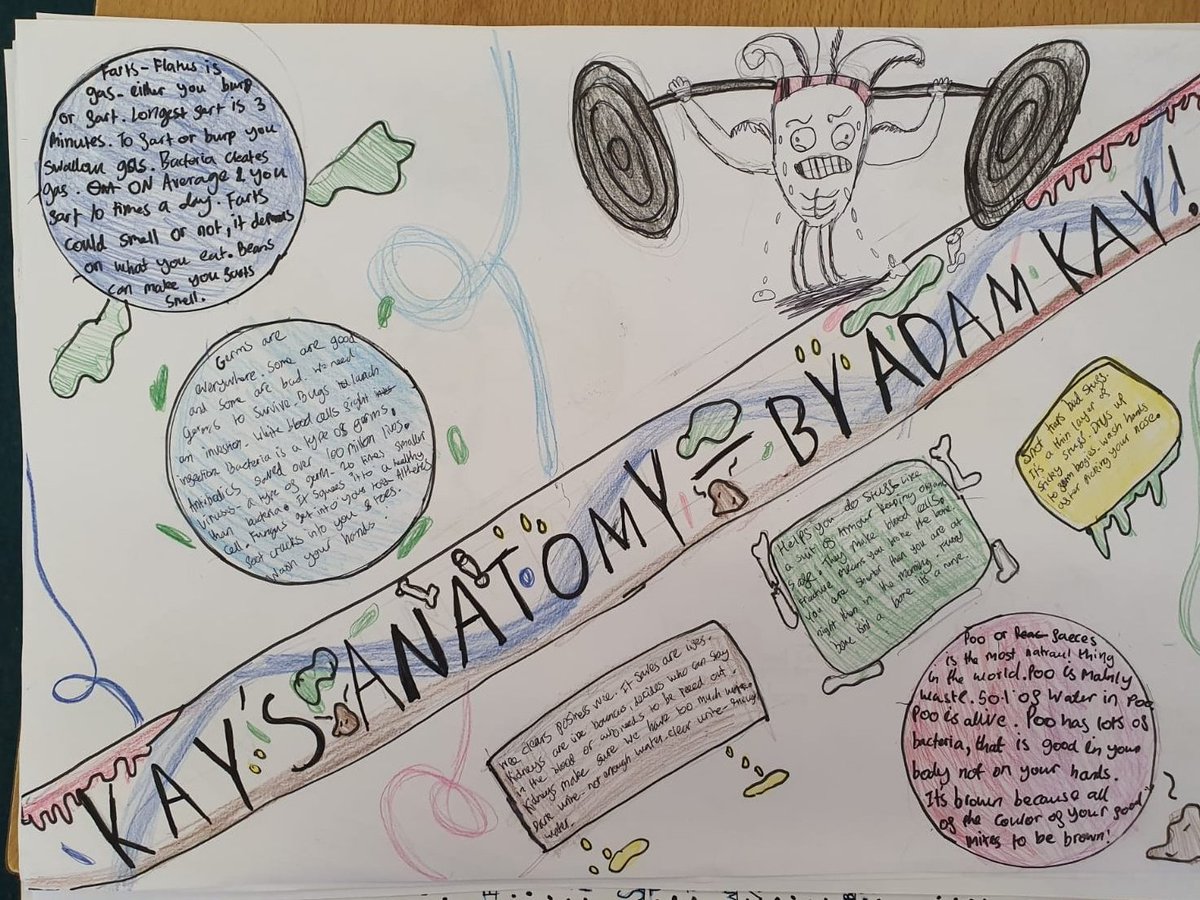 Farts - Flatus is
gas - either you burp
or fart. Longest fart is 3
minutes. To fart or burp you
swallow gas. Bacteria creates
gas. ON Average & you
fart 10 times a day. Farts
could smell or not, it
on what you eat. Beans
can make you farts
smell.
Germs are
everywhere. Some are good
and some are bad. We need
germs to survive. Bugs launch
an invastion. White blood cells fight
ingection. Bacteria is a type of germs.
Antibiotics saved over 100 million lives.
Viruses - a type of germ - 20 times smaller
than bacteria. It squees it to a healthy
cell. Fungus get into your
foot cracks into you & toes.
Wash your hands.
KAY'S ANATOMY - BY ADAM KAY!
Snot traps bad stuff.
It's a thin layer of
sticky stuff. Drys up
to form bogies. Wash hands
after picking your nose.
Helps you do stuff like
a suit of armour keeping organs
safe. They make blood cells.
Fracture means you broke the bone.
You are shorter than you are at
night than in the morning. Funny
bone isn't a bone it's a nerve.
Wee clears
Kidneys are like bouncers, decides who can stay
in the blood or who needs to be peed out.
Kidneys make sure we have too much
Dark urine - not enough water. Clear urine - enough
water.
Poo or faeces
is the most natraul thing
in the world. Poo is mainly
waste. 50% of water in Poo
Poo is alive. Poo has lots of
bacteria, that is good in your
body not on your hands.
Its brown because all
of the coulor of your food
mixes to be brown!